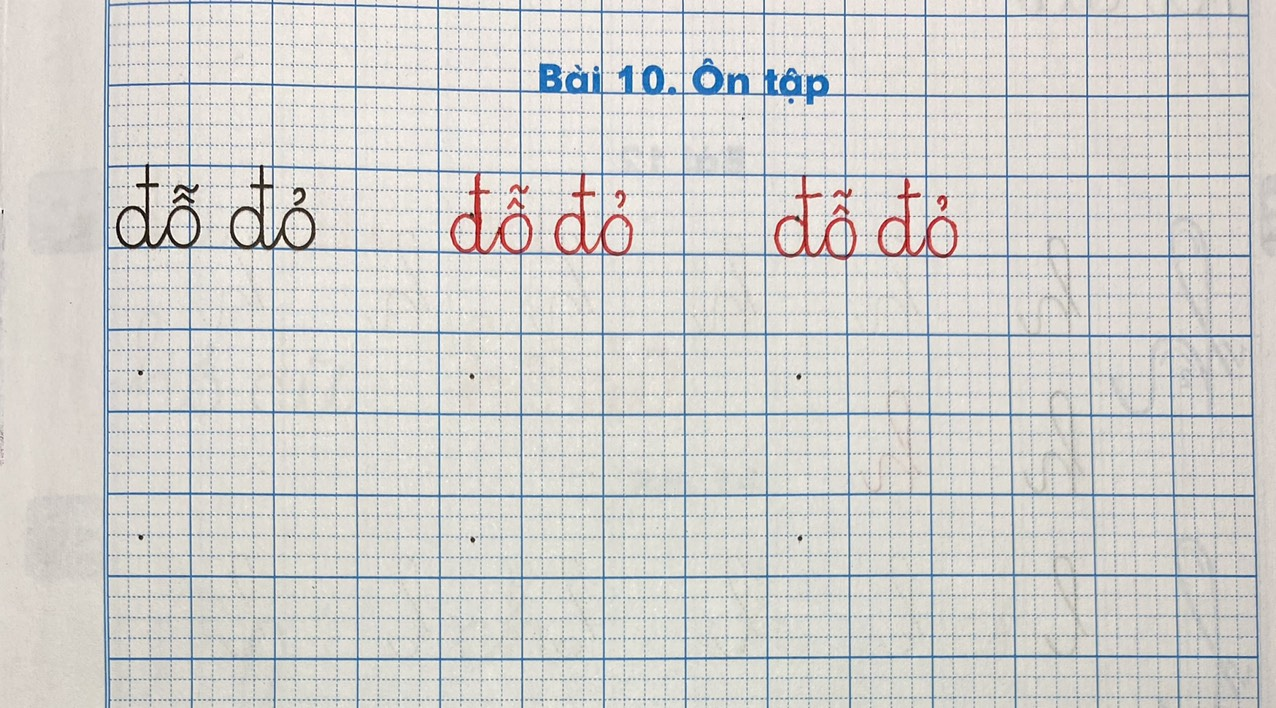 Bài 10. Ôn tập
đỗ đỏ đỗ đỏ đỗ đỏ